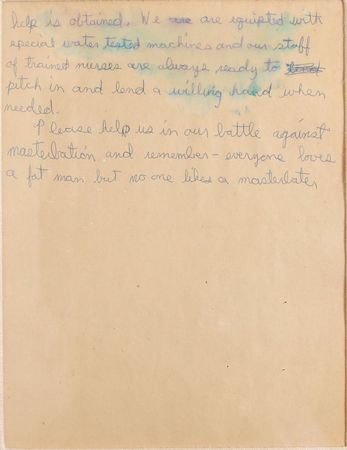 help is obtained. We are are equipted with
special water tested machines and our staff
of trained nurses are always ready to
pitch in and lend a willing hand when
needed.
Please help us in our battle against
masterbation and remember - everyone loves
a fat man but no one likes a masterbater